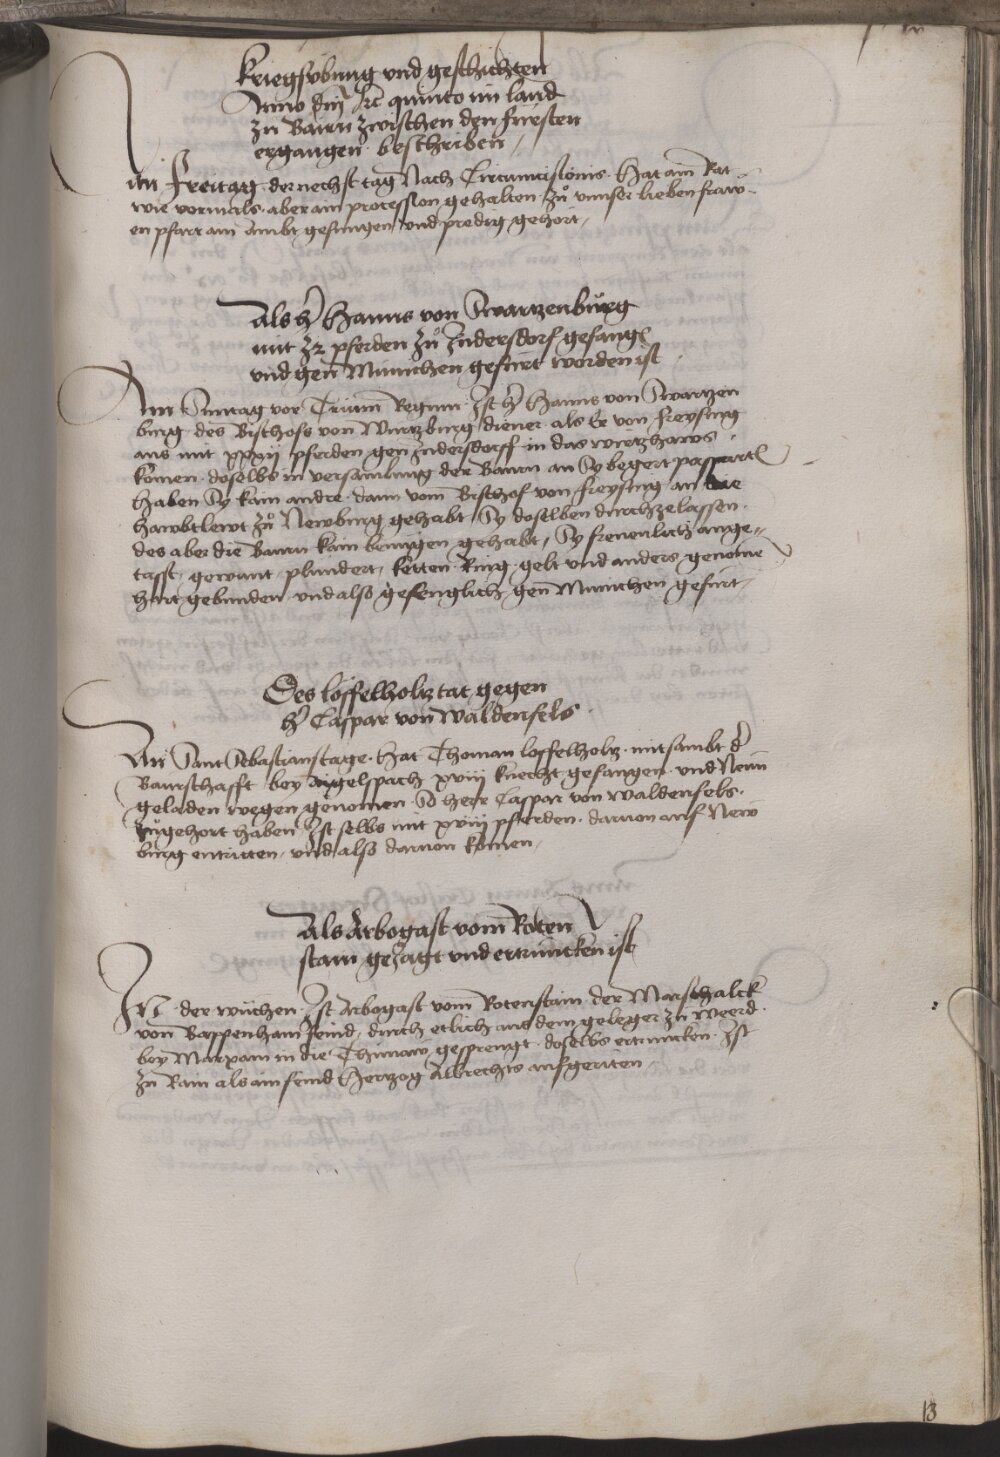 Kriegsübung und geschichten
Anno dni etc quinto im land
zu Bairn zwischen den fürsten
ergangen beschriben
Am Freitag der nechst tag Nach Circumcisionis Hat ain Rat
wie vormals aber ain procession gehalten zů unnser lieben fraw-
en pfarr ain Ambt gesungen und predig gehort
Als hr Hanns von Swartzenburg
mit 32 pferden zů Jndersdorf gefangn
und gen Munichen gefürt worden ist
Am Suntag vor Trium Regum Jst hr Hanns von Swartzen
burg des Bischofs von Wurtzburg diener als Er von Freysing
aus mit xxxij pferden gen Jndersdorff in das wirtzhaws
komen doselbs in versamlung der Bawrn an Sy begert
Haben Sy kain andre dann vom Bischof von Freysing an die
hawbtlewt zů Newburg gehabt Sy doselben durchzelassen
des aber die Bawrn kain benügen gehabt, Sy frevenlich ange-
tasst, gewunt, plundert, ketten Ring gelt und anders genome
hart gebunden und also gefenglich gen Munichen gefürt
Des löffelholtz tat gegen
hr Caspar von Waldenfels
An Sant Sebastians tage Hat Thoman loffelholtz mitsambt dr
Baurschafft bey xviij knecht gefangen und Neun
geladen wegen genomen So herr Caspar von Waldenfels
zugehort haben Jst selbs mit xviij pferden darvon auf New
burg entritten, und also darvon komen
Als Arbogast vom Roten
stain gejagt und ertrüncken ist
Jn der wuchen Jst Arbogast vom Rotenstain der Marschalck
von Bappenhaim feind, durch etlich aus dem geleger zu Weerd
bey Marxam in die Thünaw gesprengt doselbs ertruncken Jst
zu Rain als ain feind Hertzog Albrechts aufgeriten
13